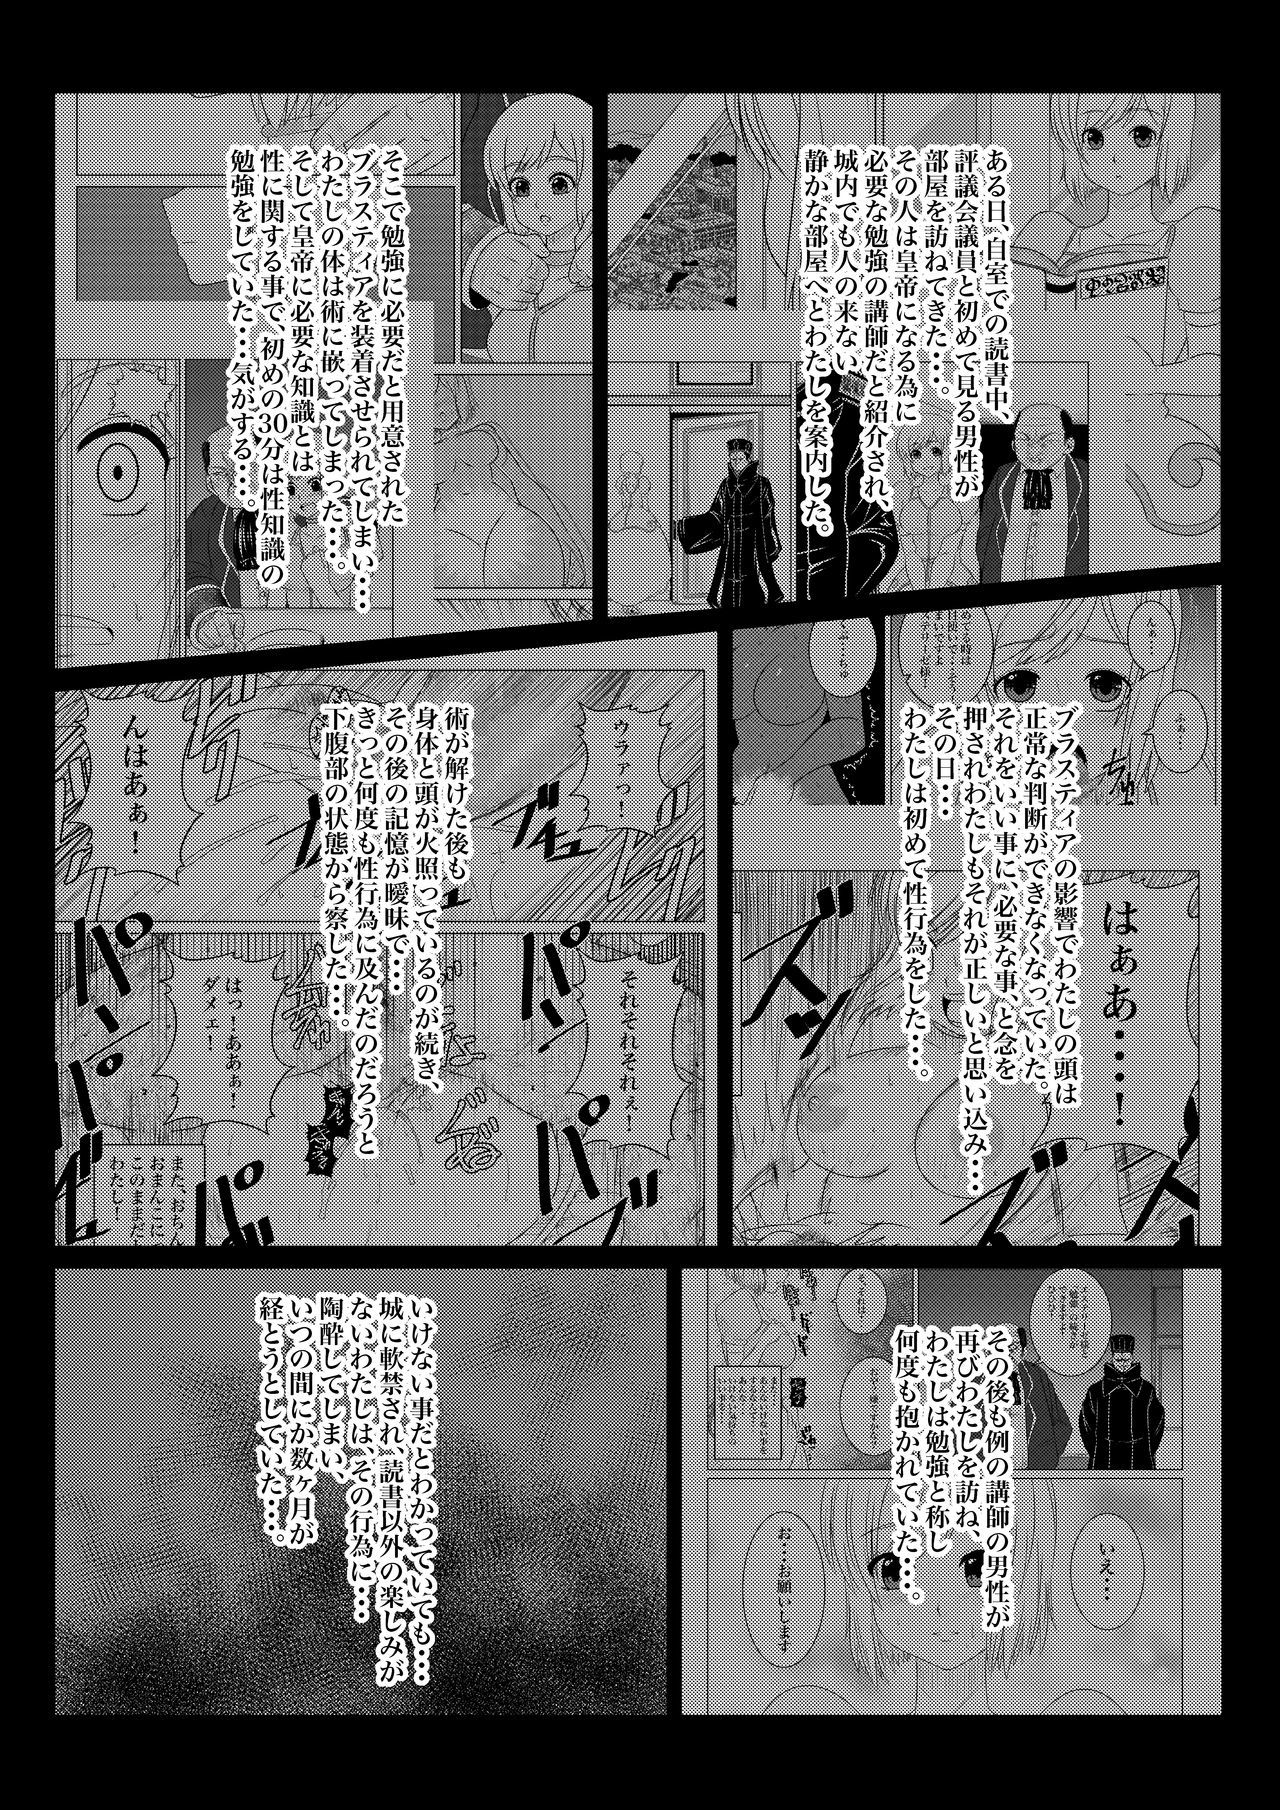 ある日、自室での読書中、
評議会議員と初めて見る男性が
部屋を訪ねてきた・・・。
その人は皇帝になる為に
必要な勉強の講師だと紹介され、
城内でも人の来ない
静かな部屋へとわたしを案内した。
そこで勉強に必要だと用意された
ブラスティアを装着させられてしまい・・・
わたしの体は術に嵌ってしまった・・・。
そして皇帝に必要な知識とは
性に関する事で、初めの30分は性知識の
勉強をしていた・・・気がする・・・。
んあ・・・
ふぁ・・・
ブラスティアの影響でわたしの頭は
正常な判断ができなくなっていた。
それをいい事に、必要な事、と念を
押されわたしもそれが正しいと思い込み・・・
その日・・・
わたしは初めて性行為をした・・・。
はぁあ・・・！
術が解けた後も
身体と頭が火照っているのが続き、
その後の記憶が曖昧で・・・
きっと何度も性行為に及んだのだろうと
下腹部の状態から察した・・・。
ウラァっ！
んはあぁ！
それそれそれぇ！
はっ！ああぁ！
ダメェ！
その後も例の講師の男性が
再びわたしを訪ね、
わたしは勉強と称し
何度も抱かれていた・・・。
いえ・・・
お・・お願いします
いけない事だとわかっていても・・・
城に軟禁され、読書以外の楽しみが
ないわたしは、その行為に・・・
陶酔してしまい、
いつの間にか数ヶ月が
経とうとしていた・・・。